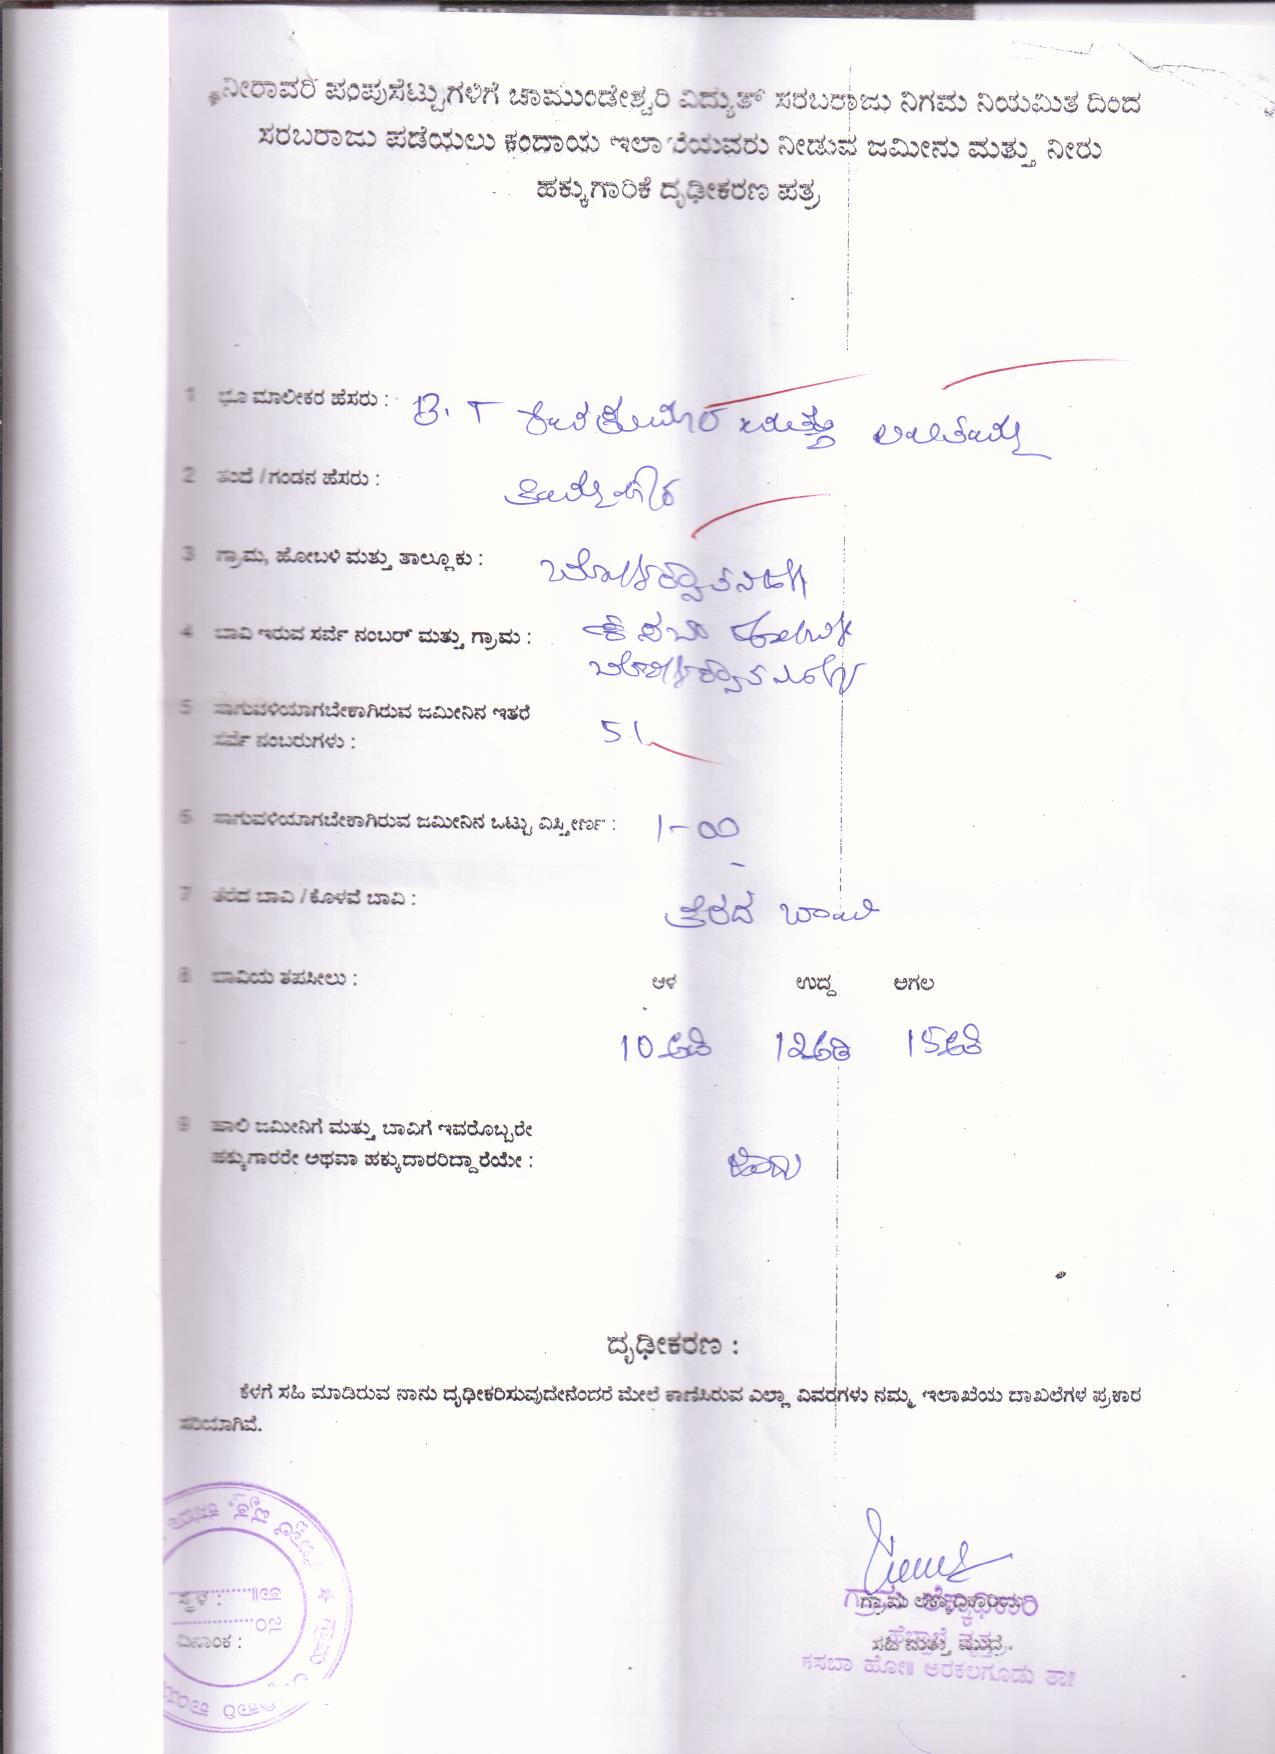 ನೀರಾವರಿ ಪಂಪುಸೆಟ್ಟುಗಳಿಗೆ ಚಾಮುಂಡೇಶ್ವರಿ ವಿದ್ಯುತ್ ಸರಬರಾಜು ನಿಗಮ ನಿಯಮಿತ ದಿಂದ
ಸರಬರಾಜು ಪಡೆಯಲು ಕಂದಾಯ ಇಲಾಖೆಯವರು ನೀಡುವ ಜಮೀನು ಮತ್ತು ನೀರು
ಹಕ್ಕುಗಾರಿಕೆ ದೃಢೀಕರಣ ಪತ್ರ
1 ಭೂ ಮಾಲೀಕರ ಹೆಸರು : B. T ಮತ್ತು
2 ತಂದೆ / ಗಂಡನ ಹೆಸರು :
3 ಗ್ರಾಮ, ಹೋಬಳಿ ಮತ್ತು ತಾಲ್ಲೂಕು :
4 ಬಾವಿ ಇರುವ ಸರ್ವೆ ನಂಬರ್ ಮತ್ತು ಗ್ರಾಮ : ಕಸಬಾ ಹೋಬಳಿ
5 ಸಾಗುವಳಿಯಾಗಬೇಕಾಗಿರುವ ಜಮೀನಿನ ಇತರೆ
ಸರ್ವೆ ನಂಬರುಗಳು : 51
6 ಸಾಗುವಳಿಯಾಗಬೇಕಾಗಿರುವ ಜಮೀನಿನ ಒಟ್ಟು ವಿಸ್ತೀರ್ಣ : 1-00
7 ತೆರೆದ ಬಾವಿ / ಕೊಳವೆ ಬಾವಿ : ತೆರದ ಬಾವಿ
8 ಬಾವಿಯ ತಪಸೀಲು : ಆಳ ಉದ್ದ ಅಗಲ
10 ಅಡಿ 12 ಅಡಿ 15 ಅಡಿ
9 ಹಾಲಿ ಜಮೀನಿಗೆ ಮತ್ತು ಬಾವಿಗೆ ಇವರೊಬ್ಬರೇ
ಹಕ್ಕುಗಾರರೇ ಅಥವಾ ಹಕ್ಕುದಾರರಿದ್ದಾರೆಯೇ : ಹೌದು
ದೃಢೀಕರಣ :
ಕೆಳಗೆ ಸಹಿ ಮಾಡಿರುವ ನಾನು ದೃಢೀಕರಿಸುವುದೇನೆಂದರೆ ಮೇಲೆ ಕಾಣಿಸಿರುವ ಎಲ್ಲಾ ವಿವರಗಳು ನಮ್ಮ ಇಲಾಖೆಯ ದಾಖಲೆಗಳ ಪ್ರಕಾರ
ಸರಿಯಾಗಿವೆ.
ಸ್ಥಳ :
ದಿನಾಂಕ :
ಗ್ರಾಮ ಲೆಕ್ಕಾಧಿಕಾರಿ
ಸಹಿ ಮತ್ತು ಮುದ್ರೆ.
ಕಸಬಾ ಹೋ॥ ಅರಕಲಗೂಡು ತಾ॥